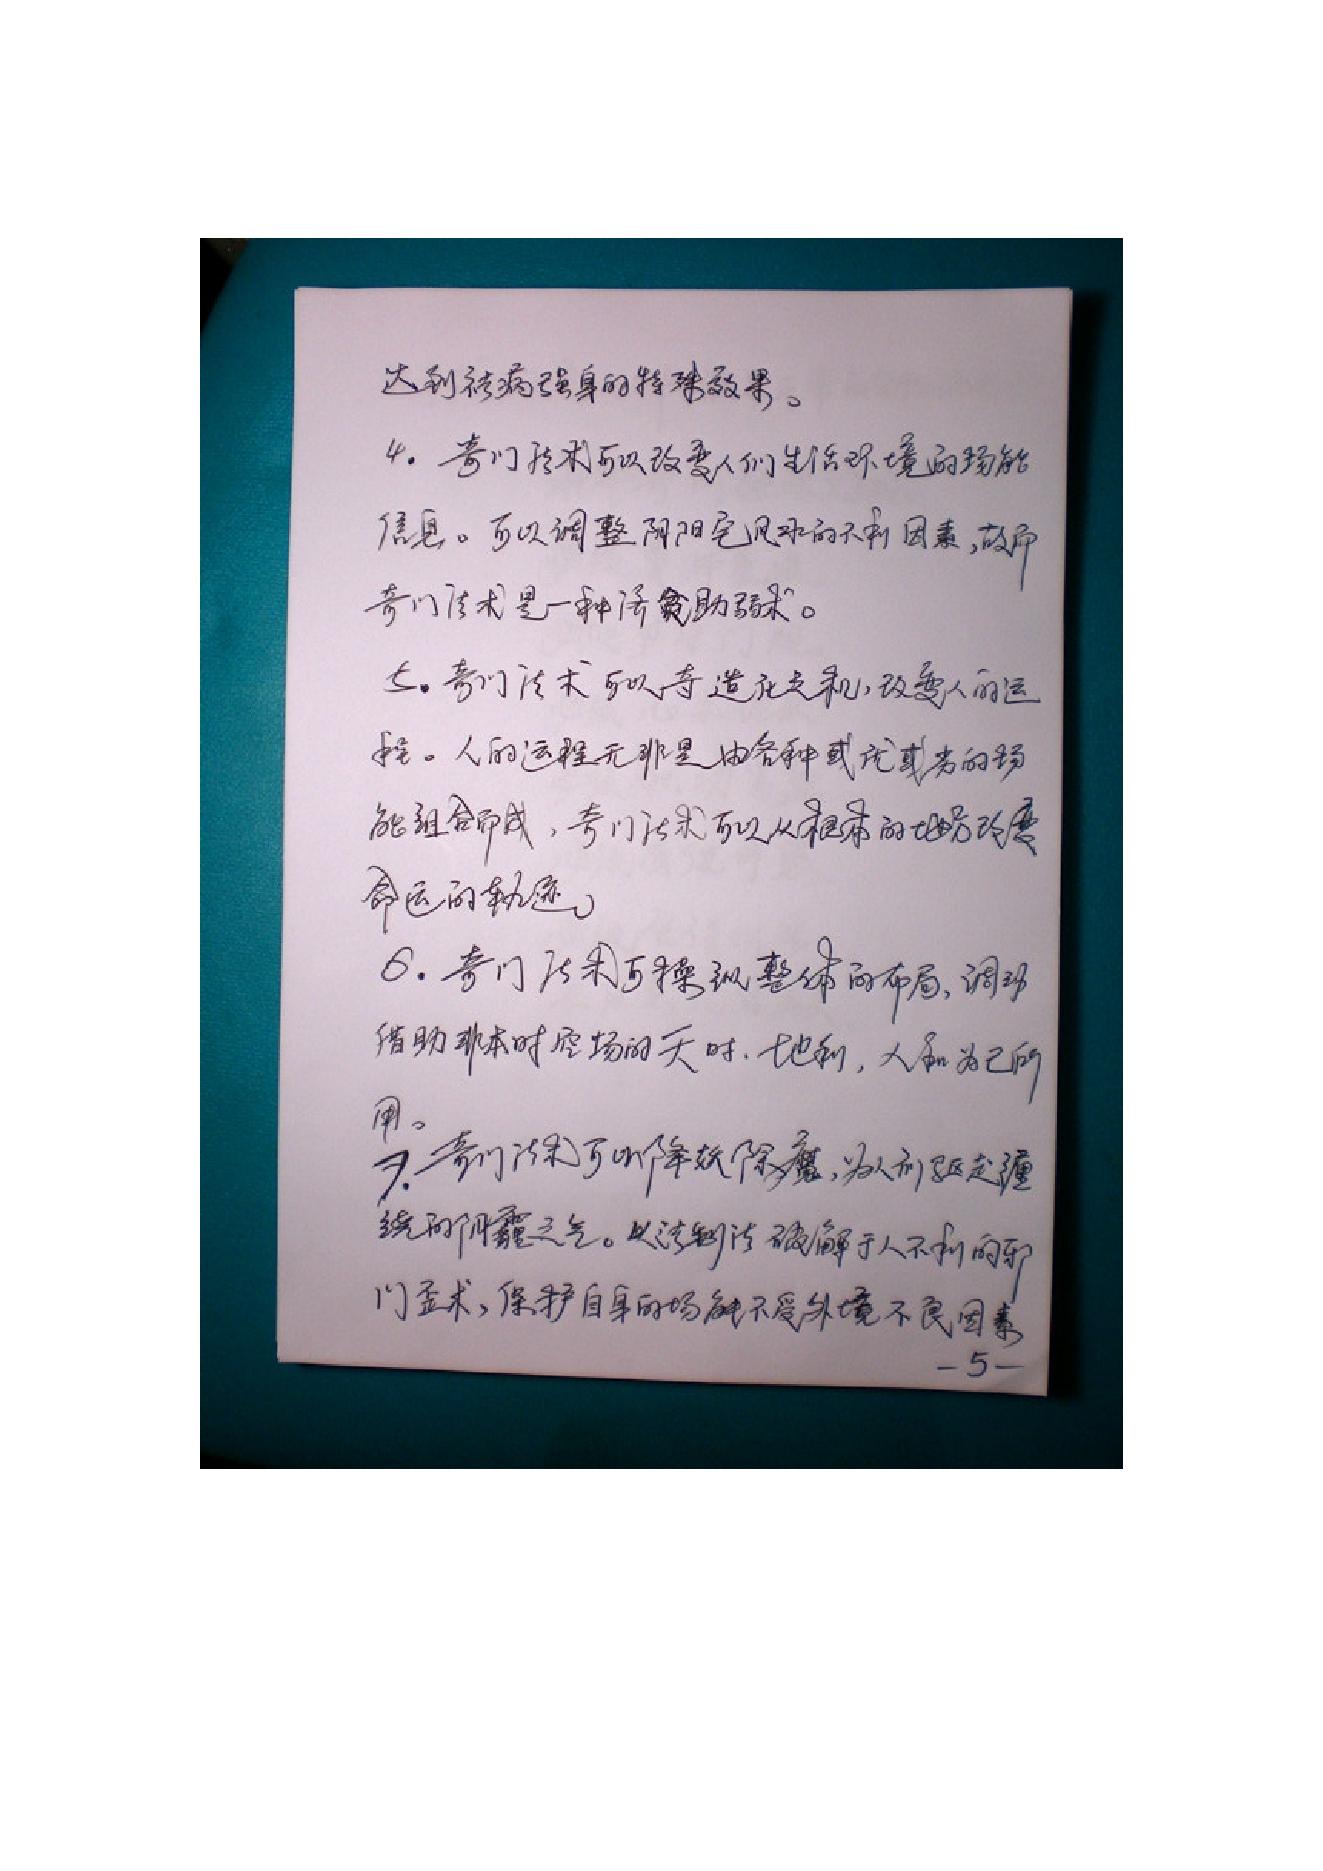 达到祛病强身的特殊效果。
4. 奇门法术可以改变人们生活环境的场能
信息。可以调整阴阳宅风水的不利因素,故而
奇门法术是一种济贫助弱术。
5. 奇门法术可以夺造化之机,改变人的运
程。人的运程无非是由各种或优或劣的场
能组合而成,奇门法术可以从根本的地方改变
命运的轨迹。
6. 奇门法术可操纵整体的布局、调动
借助非本时空场的天时、地利,人和为己所
用。
7. 奇门法术可以降妖除魔,为人们驱走缠
绕的阴霾之气。以法制法破解于人不利的邪
门歪术,保护自身的场能不受外境不良因素
-5-